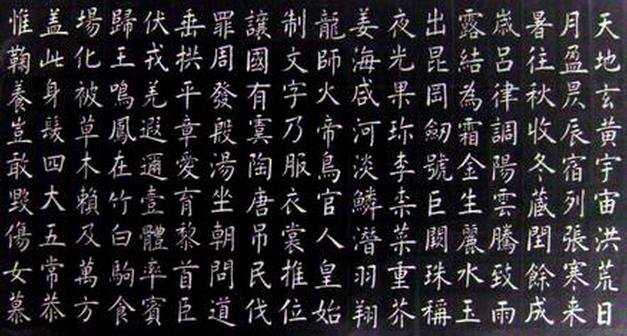 天地玄黃宇宙洪荒日
月盈昃辰宿列張寒来
暑往秋收冬藏閏餘成
歲呂律調陽雲騰致雨
露結為霜金生麗水玉
出昆岡劒號巨闕珠稱
夜光果珎李柰菜重芥
姜海咸河淡鱗潛羽翔
龍師火帝鳥官人皇始
制文字乃服衣裳推位
讓國有虞陶唐吊民伐
罪周發殷湯坐朝問道
垂拱平章愛育黎首臣
伏戎羌遐邇壹體率賓
歸王鳴鳳在竹白駒食
場化被草木賴及萬方
盖此身髮四大五常恭
惟鞠養豈敢毀傷女慕